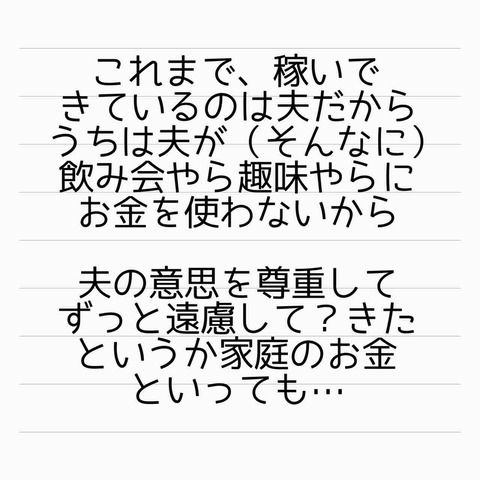 これまで、稼いで
きているのは夫だから
うちは夫が（そんなに）
飲み会やら趣味やらに
お金を使わないから
夫の意思を尊重して
ずっと遠慮して？きた
というか家庭のお金
といっても…